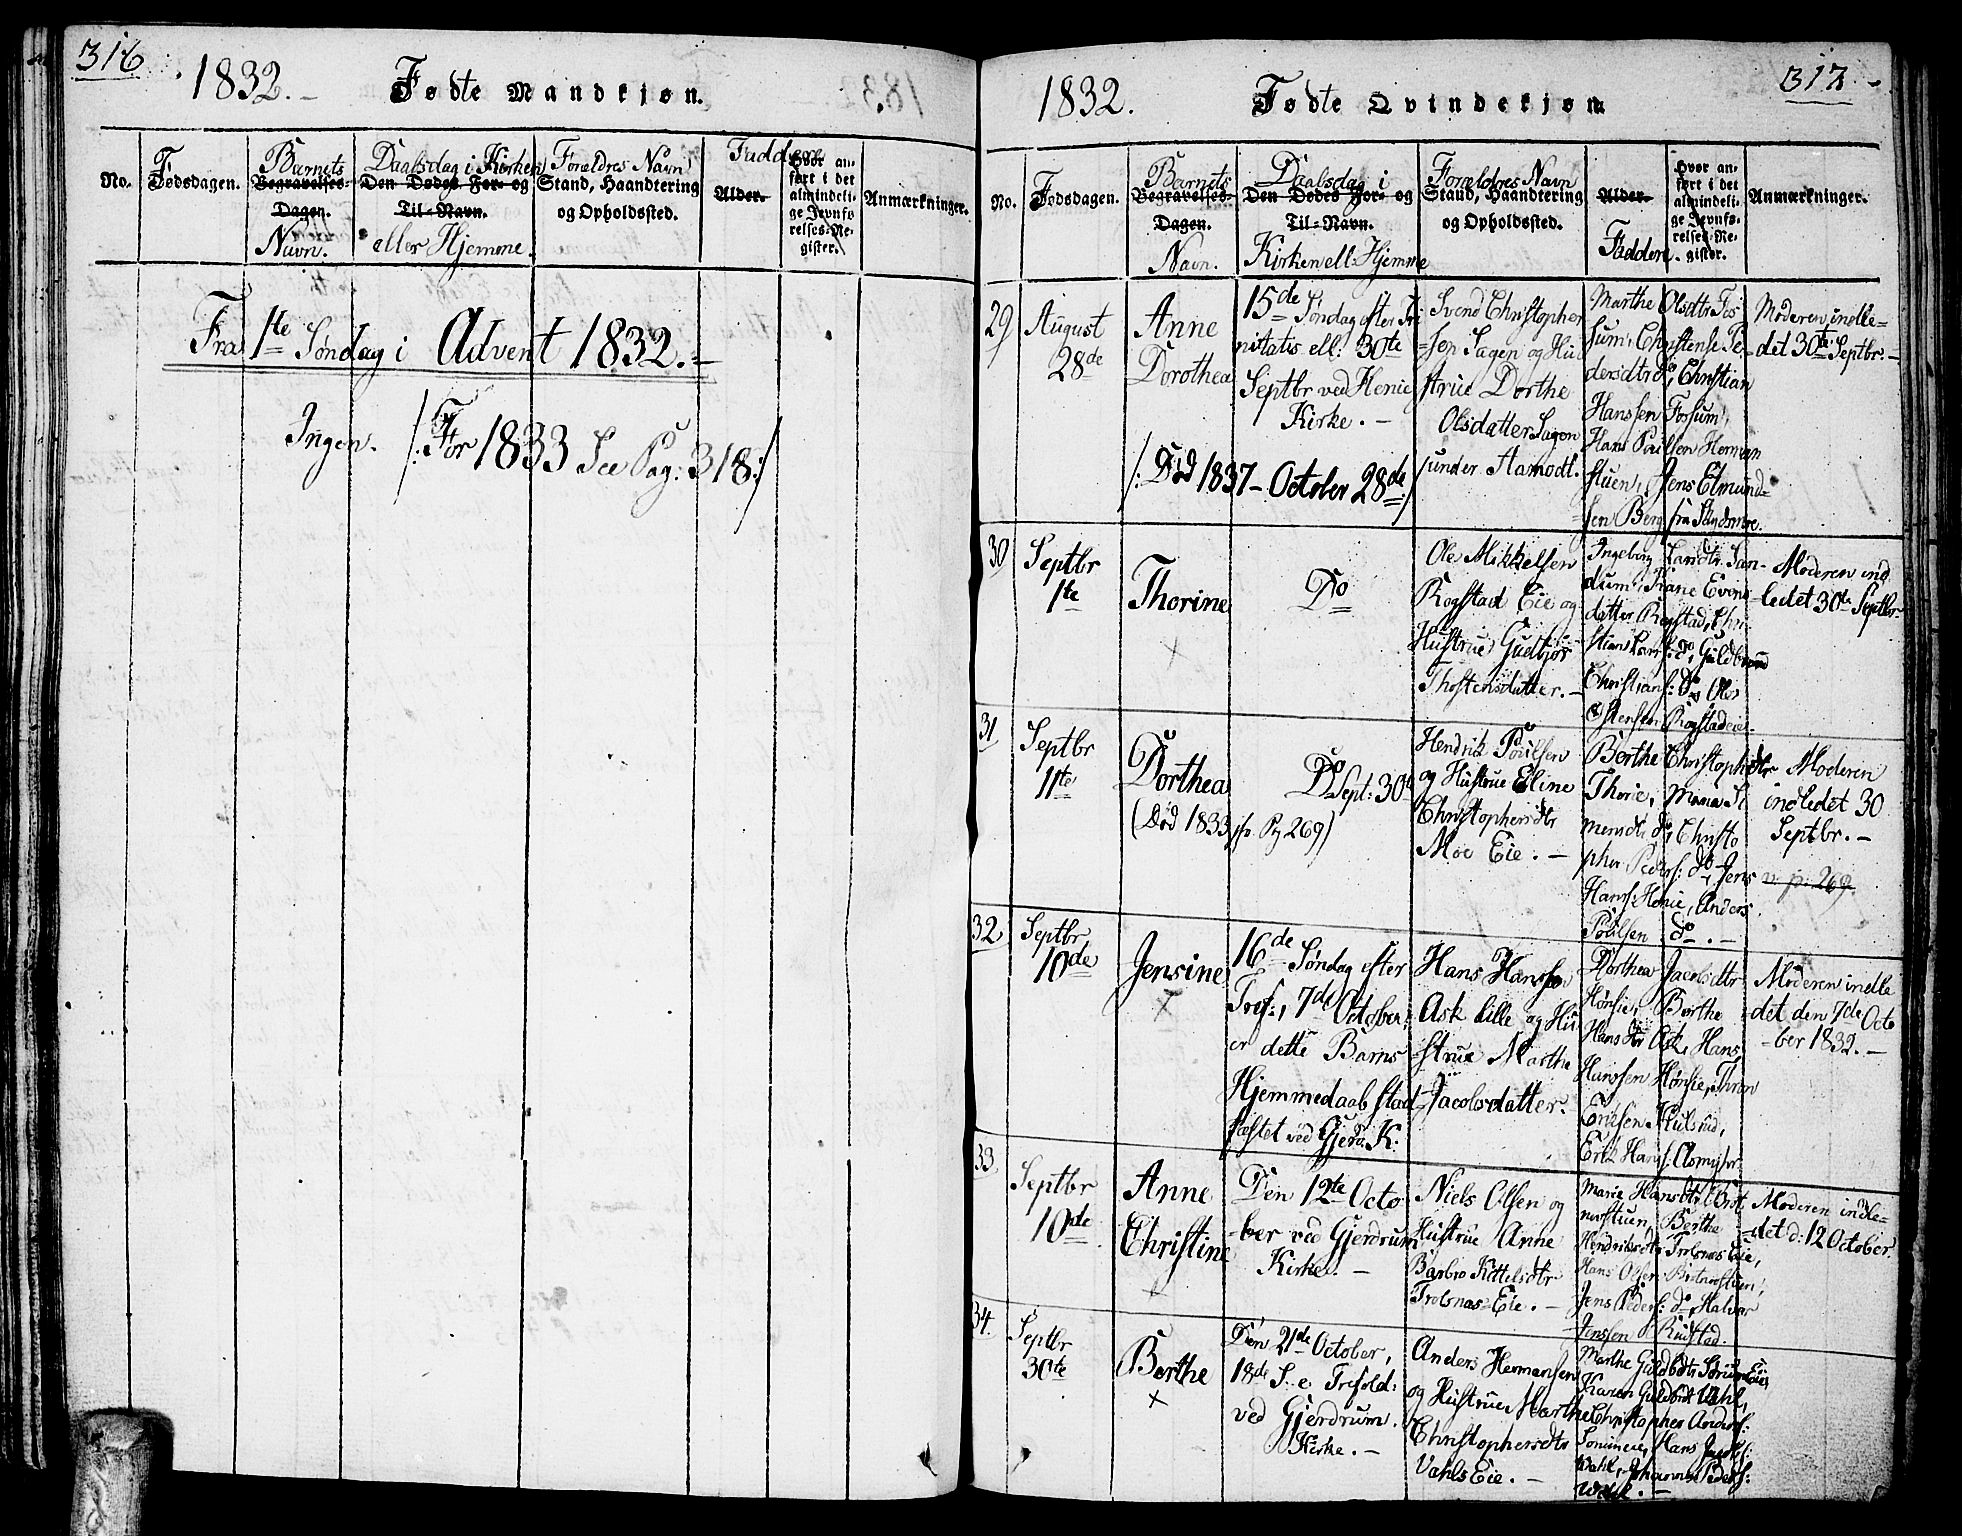 316
1832.
Fødte Mandkjøn.
No.
Fødsdagen.
Barnets
Begravelses-
Dagen.
Navn.
Daabsdag i Kirken
Den Dødes For- og
Til-Navn.
eller Hjemme.
Forældres Navn
Stand, Haandtering
og Opholdssted.
Faddere
Alder.
Hvor an-
ført i det
almindeli-
ge Jevnfø-
relses-Re-
gister.
Anmærkninger.
Fra 1ste Søndag i Advent 1832.
Ingen. /: For 1833 See Pag: 318 :/
317
1832.
Fødte Qvindekjøn
No.
Fødsdagen.
Barnets
Begravelses-
Dagen.
Navn.
Daabsdag i
Den Dødes For- og
Til-Navn.
Kirken ell: Hjemme
Forældres Navn
Stand, Haandtering
og Opholdssted.
Alder.
Faddere.
Hvor an-
ført i det
almindeli-
ge Jevnfø-
relses-Re-
gister.
Anmærkninger.
29
August
28de
Anne
Dorothea
15de Søndag efter Tri
nitatis ell: 30te
Septbr ved Henie
Kirke. -
/: Død 1837 - October 28de :/
Svend Christopher
sen Sagen og Hu
strue Dorthe
Olsdatter Sagen
under Aamodt.
Marthe Olsdtr Fos
sum, Christense Pe-
dersdtr do, Christian
Hanssen Fossum,
Hans Poulsen Herman
stuen, Jens Elmund-
sen Berg fra
Moderen indle-
det 30te Septbr. -
30
Septbr
1te
Thorine
Do
Ole Mikkelsen
Rogstad Eie og
Hustrue Gudbjør
Thostensdatter. -
Ingeborg Larsdtr San-
dum, Evens
datter Rogstad, Chri-
stian Lars: do, Guldbrand
Christians: Do, Ole
Ostensen Rogstadeie.
Moderen ind
ledet 30te Septbr
31
Septbr
11te
Dorthea
(Død 1833, Pg 269)
Do Sept: 30te
Hendrik Poulsen
og Hustrue Eline
Christophersdtr
Moe Eie. -
Berthe Christophsdtr
Thorie, Maria Si
mensdtr do, Christo
pher Peders: do, Jens
Hans: Henie, Anders
Poulsen do. -
Moderen
indledet 30
Septbr. -
v. p: 269
32
Septbr
10de
Jensine
16de Søndag efter
Tref:, 7de October,
er dette Barns
Hjemmedaab stad-
fæstet ved Gjerd: K:
Hans Hanssen
Ask lille og Hu-
strue Marthe
Jacobsdatter.
Dorthea Jacobsdtr
Hønsie, Berthe
Hansdtr Ask, Hans
Hanssen Hønsie, Thron
Eriksen Hulsrud,
Erik Hans: Asmyhr
Moderen indle
det den 7de Octo
ber 1832. -
33
Septbr
10de
Anne
Christine
Den 12te Octo
ber ved Gjerdrum
Kirke. -
Niels Olsen og
Hustrue Anne
Barbro Kittelsdtr
Trolsnæs-Eie. -
Marie Hansdtr Brot
nerstuen, Berthe
Hendriksdtr Trolsnæs Eie,
Hans Olsen Brotnerstuen,
Jens Peders: do, Halvor
Jenssen Rustad.
Moderen indle-
det d: 12 October
34.
Septbr
30te
Berthe
Den 21de October,
18de S. e. Trefold:
ved Gjerdrum
Kirke. -
Anders Hermansen
og Hustrue Marthe
Christophersdtr
Vahls Eie. -
Marthe Guldbdtr Eie,
Karen Guldbdtr Wahl,
Christopher Anders:
Hans
Wahl, Johannes Peders:
Wahl. -